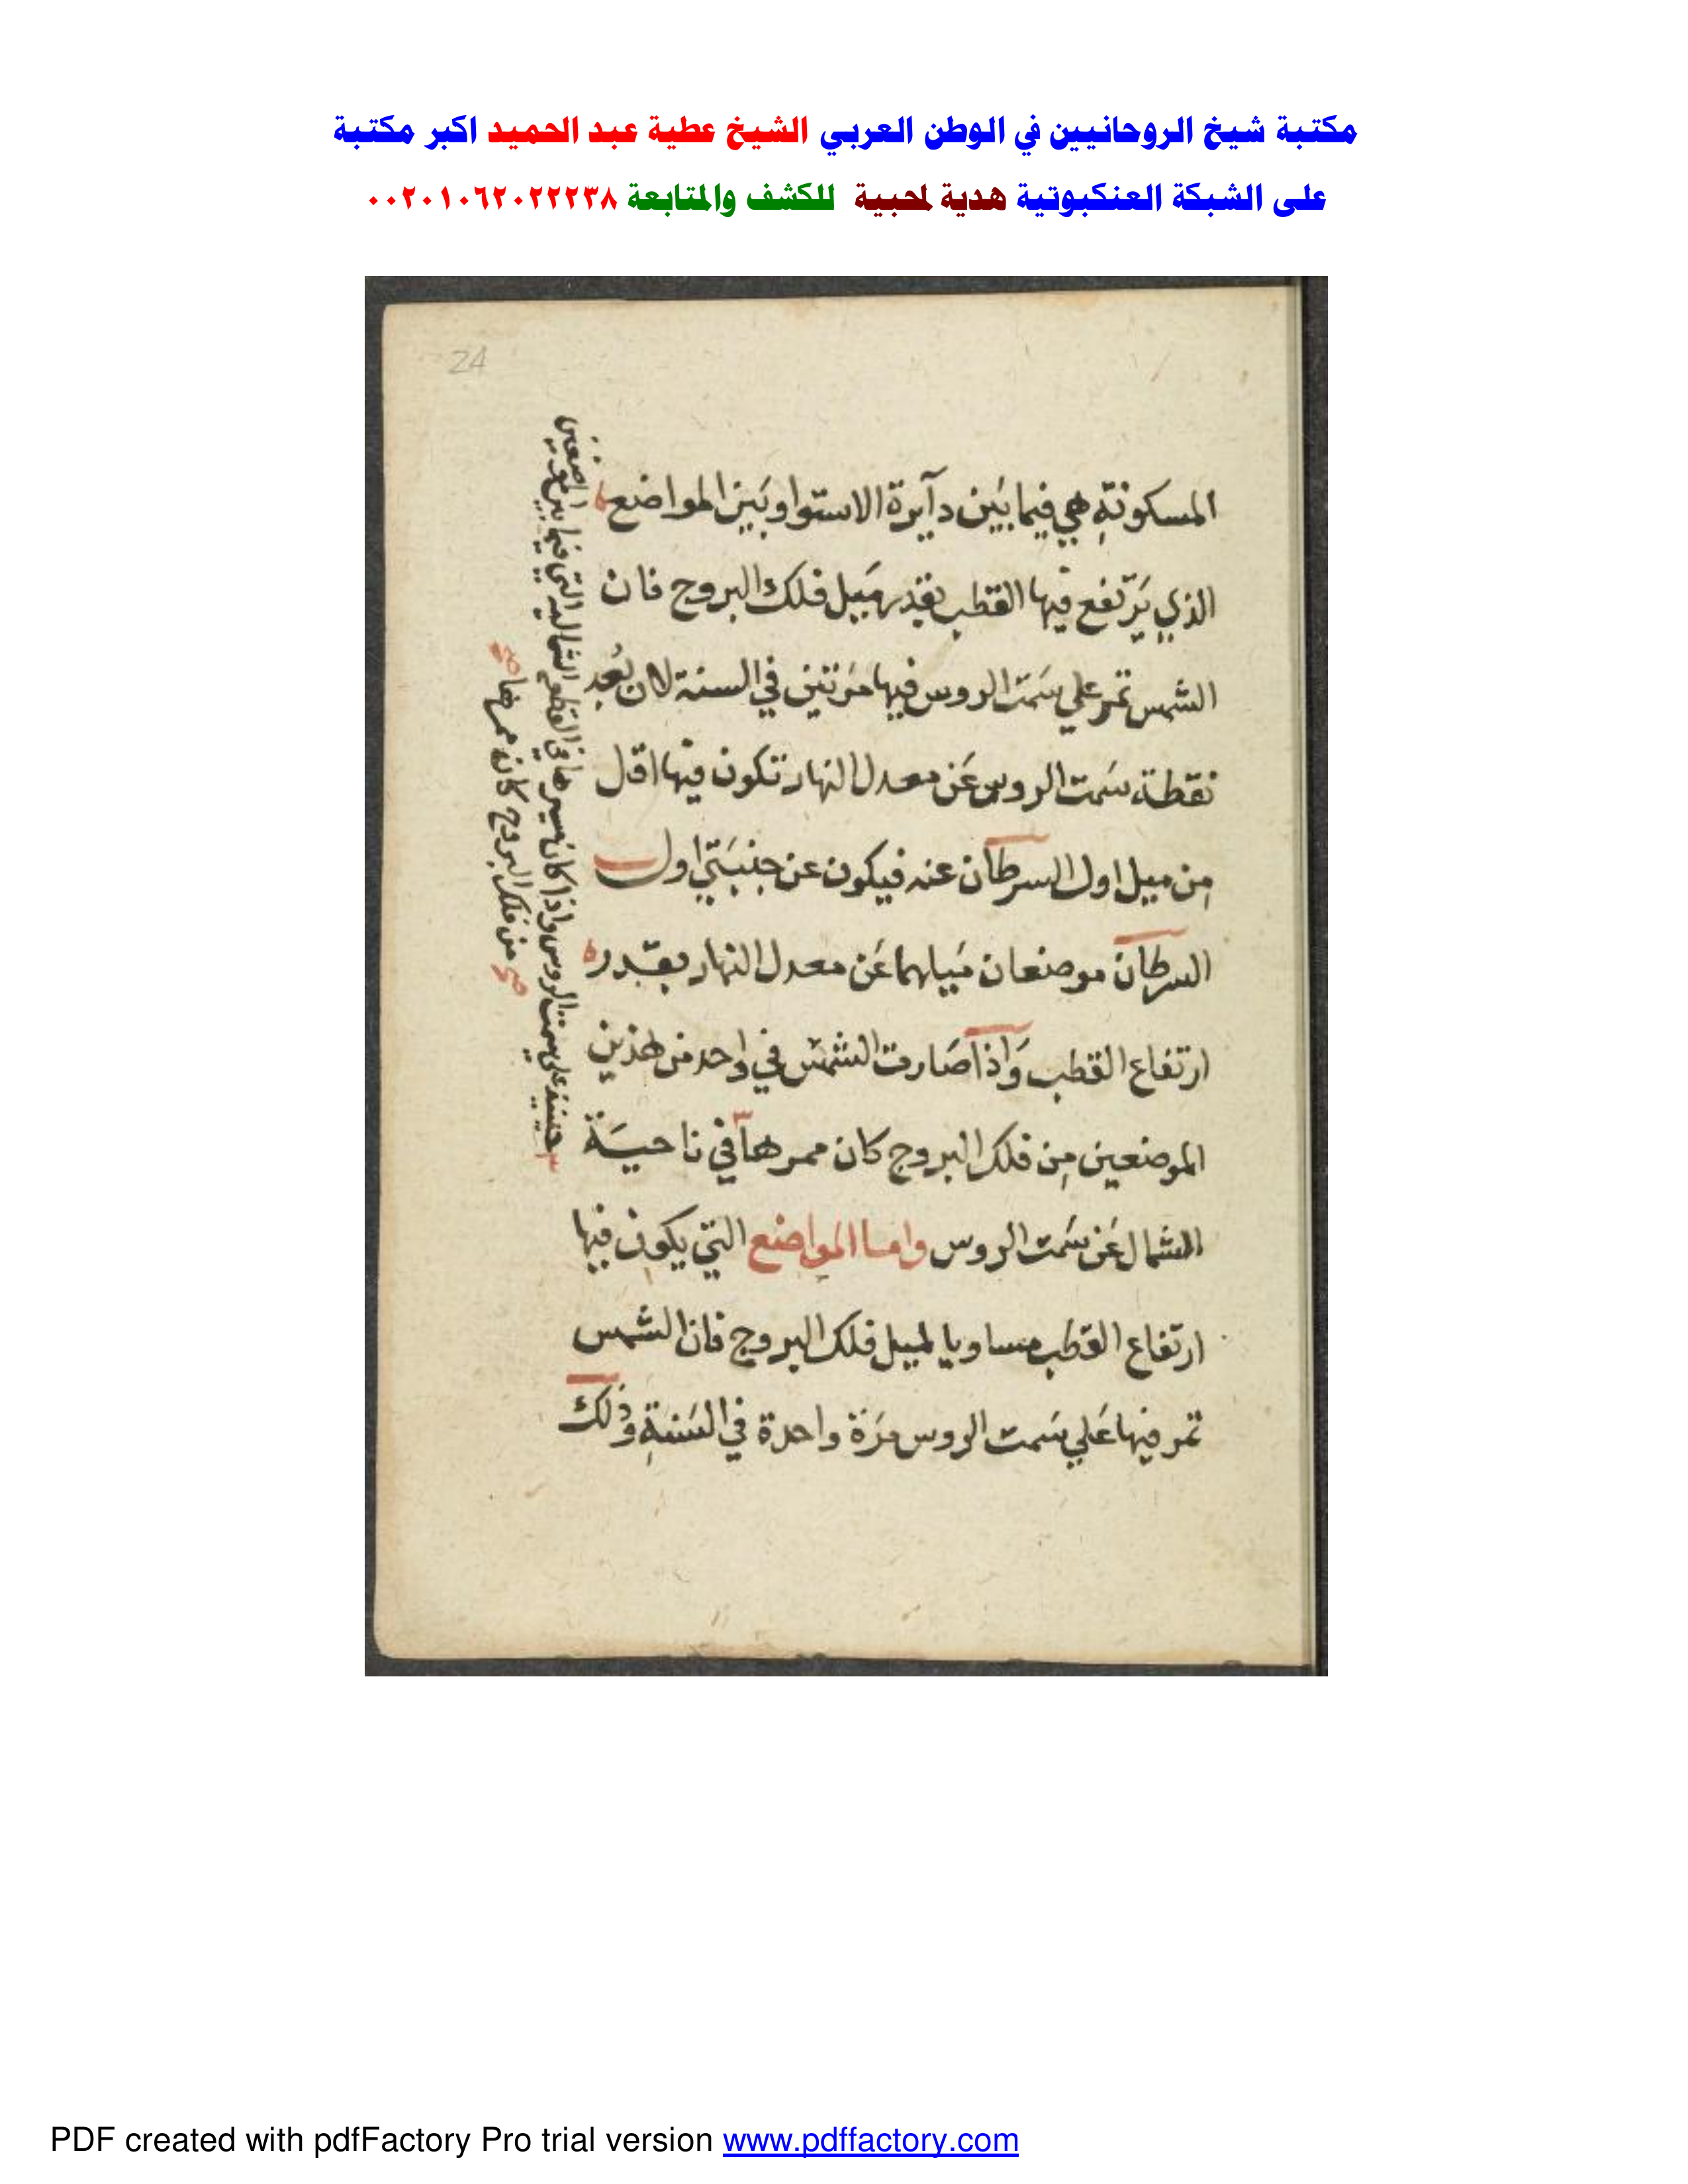 مكتبة شيخ الروحانيين في الوطن العربي الشيخ عطية عبد الحميد اكبر مكتبة
على الشبكة العنكبوتية هدية لمحبية للكشف والمتابعة ٠٠٢٠١٠٦٢٠٢٢٢٣٨
24
المسكونة هي فيما بين دآيرة الاستوا وبين المواضع
الذي يرتفع فيها القطب بقدر ميل فلك البروج فان
الشمس تمر علي سمت الروس فيها مرتين في السنة لان بعد
نقطة سمت الروس عن معدل النهار تكون فيها اقل
من ميل اول السرطان عنه فيكون عن جنبتي اول
السرطان موضعان ميلهما عن معدل النهار بقدر
ارتفاع القطب واذا صارت الشمس في واحد من هذين
الموضعين من فلك البروج كان ممرها في ناحية
الشمال عن سمت الروس واما المواضع التي يكون فيها
ارتفاع القطب مساويا لميل فلك البروج فان الشمس
تمر فيها علي سمت الروس مرة واحدة في السنة وذلك
حينيذ علي سمت الروس واذا كان مسيرها في القطعه الشماليه التي فيما بين
من فلك البروج كان ممرها
PDF created with pdfFactory Pro trial version www.pdffactory.com